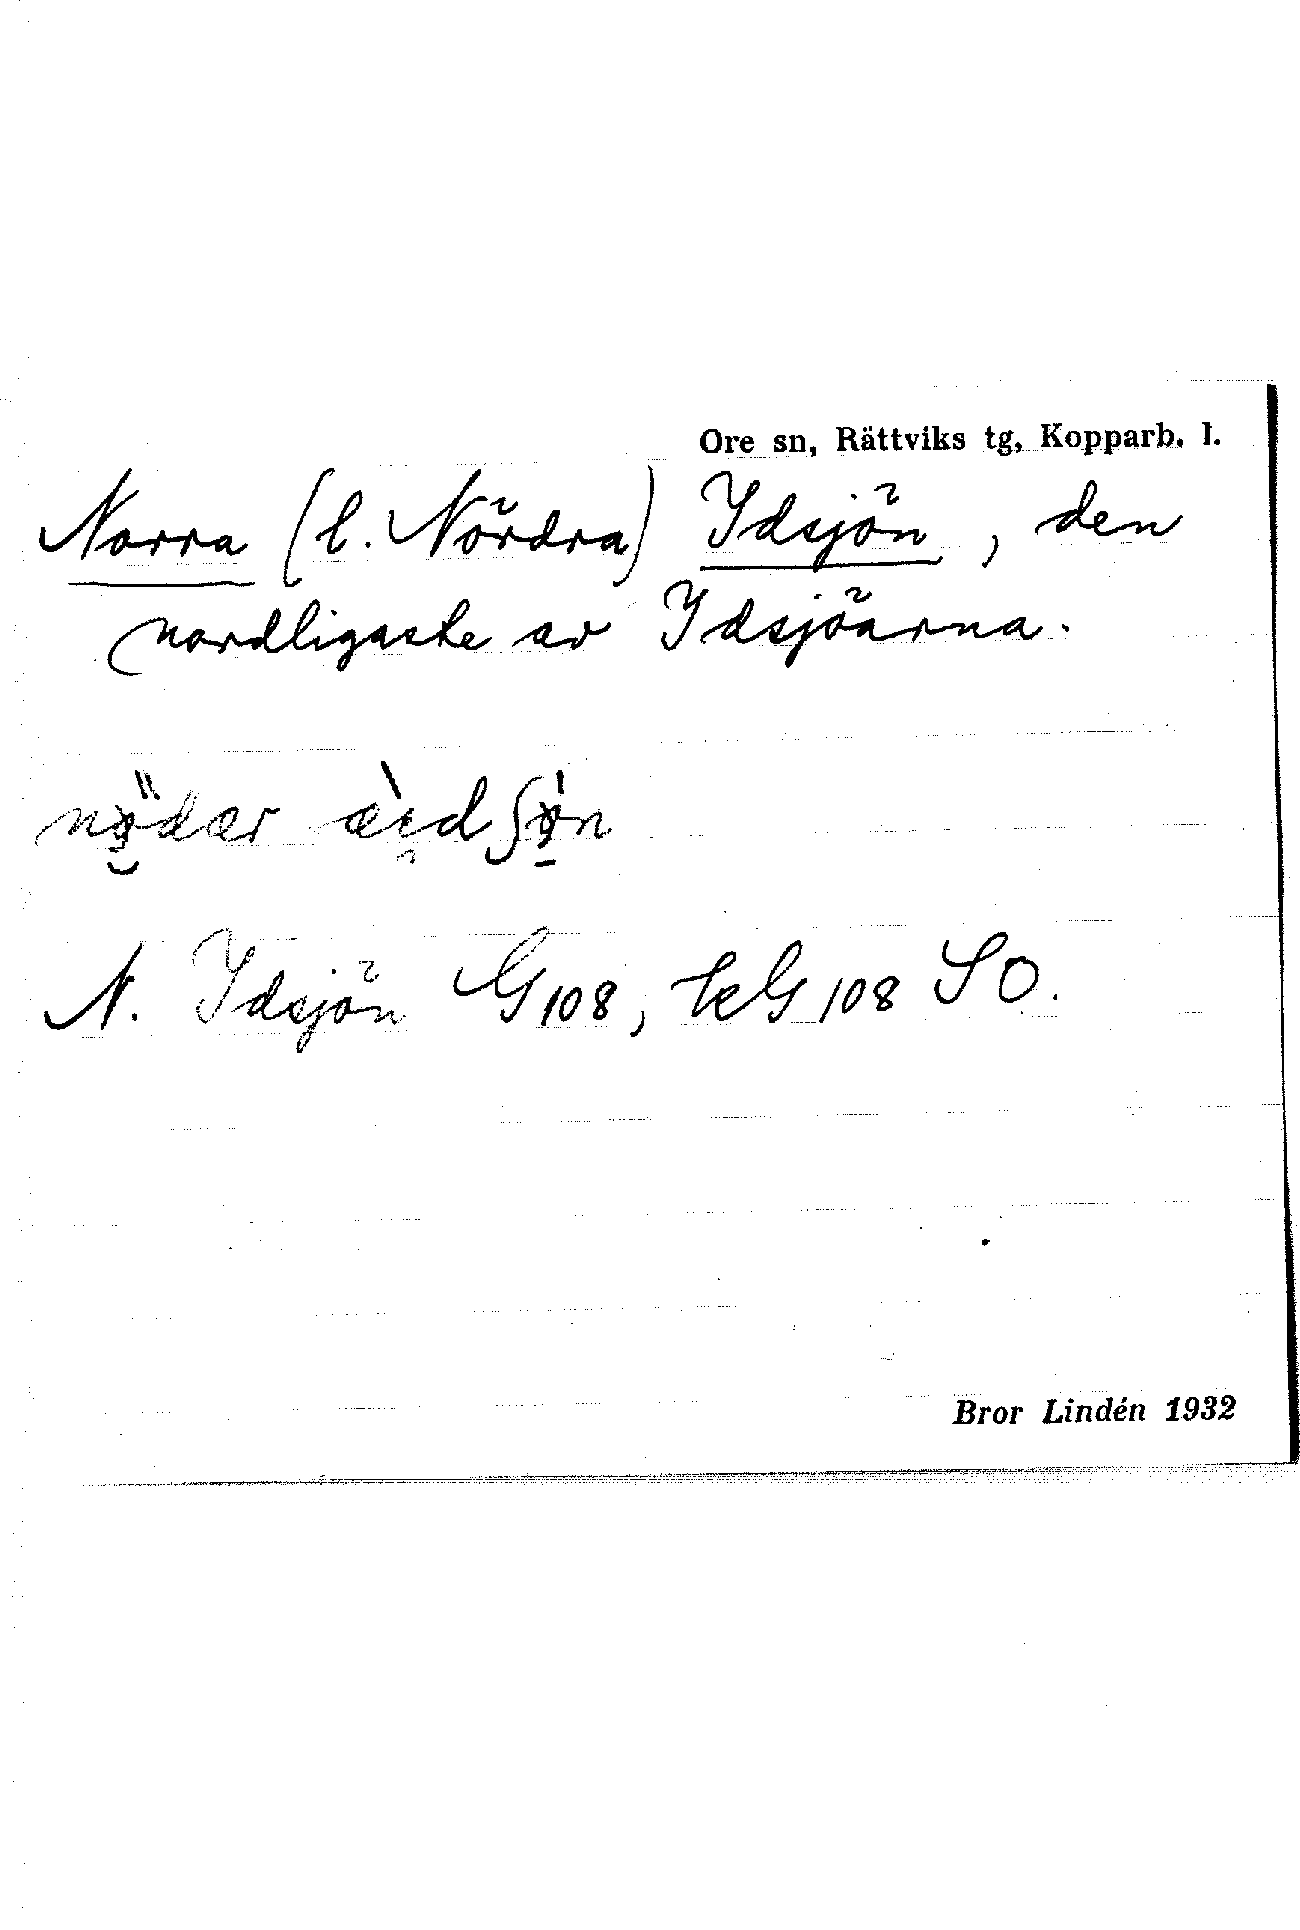 Ore sn, Rättviks tg, Kopparb. l.
Norra (l. Nördra) Idsjön, den
nordligaste av Idsjöarna.
N. Idsjön G 108, KG 108 SO.
Bror Lindén 1932